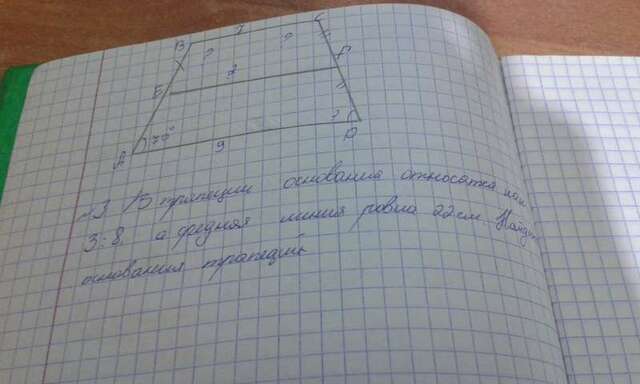 B 7 C
? ?
E ? F
75° ?
A 9 D
№3 В трапеции основания относятся как
3:8, а средняя линия равна 22 см. Найди
основания трапеции